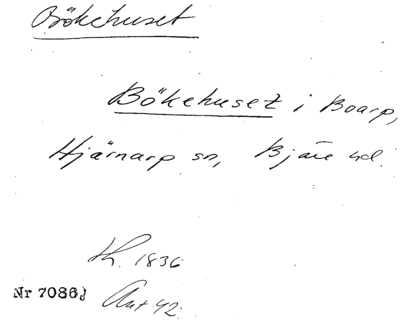 Bökehuset
Bökehuset i Boarp,
Hjärnarp sn, Bjäre hd.
h. 1836
Nr 7086
Ant 42